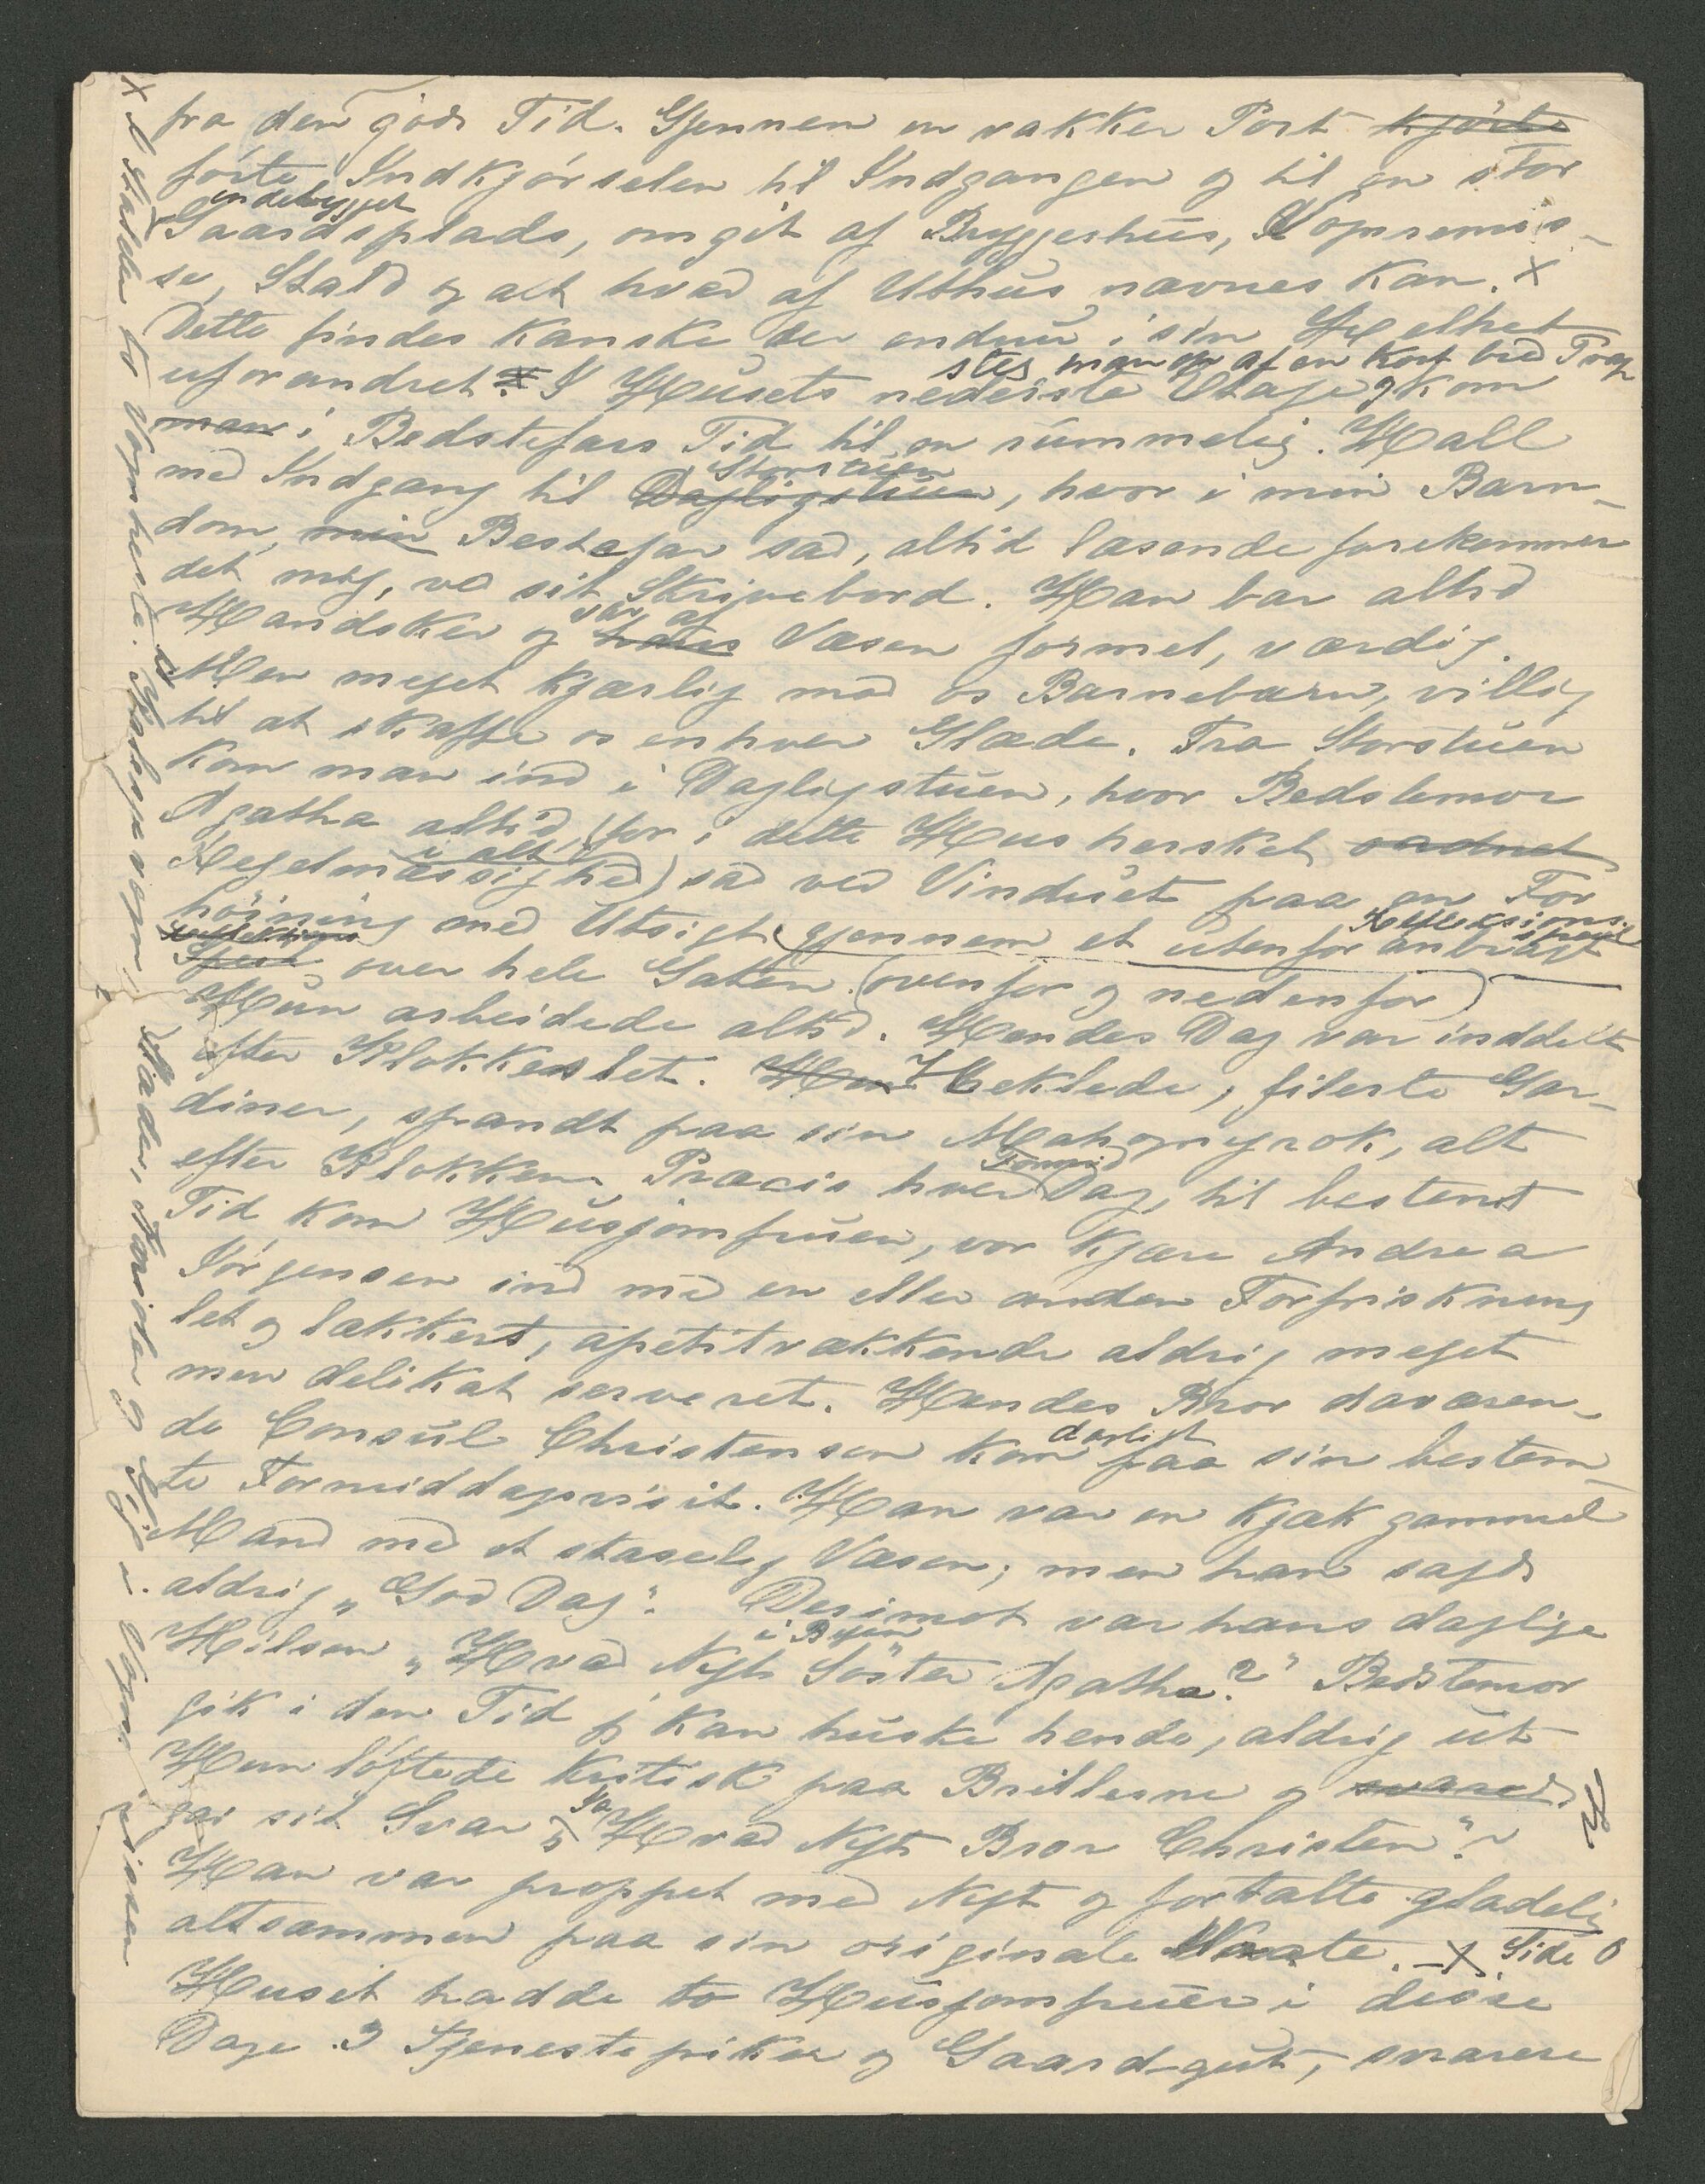 fra den gode Tid. Gjennem en vakker Port kjørte
førte Indkjørselen til Indgangen og til en stor
indebygget
Gaardsplads, omgit af Bryggerhus, Vognremis-
se, Stald og alt hvad af Uthus nævnes kan. x
Dette findes kanske der endnu i sin Helhet
uforandret. I Husets nederste Etage kom
steg man op af en kort bred Trap
man i Bedstefars Tid til en rummelig Hall
med Indgang til Dagligstuen, hvor i min Barn-
Storstuen
dom, min Bestefar sad, altid læsende forekommer
det mig, ved sit Skrivebord. Han bar altid
Handsker og hans Væsen formel, værdig.
var af
Men meget kjærlig mod os Barnebarn, villig
til at skaffe os enhver Glæde. Fra Storstuen
kom man ind i Dagligstuen, hvor Bedstemor
Agatha altid (for i dette Hus hersket
i alt
Regelmæssighed) sad ved Vinduet paa en For
høining med Utsigt gjennem et utenfor anbragt
Refleksions
speil
over hele Gaten (ovenfor og nedenfor)
Hun arbeidede altid. Hendes Dag var inddelt
efter Klokkeslet. Hun Heklede, filerte Gar-
diner, spandt paa sin Mahognyrok, alt
efter Klokken. Præcis hver Dag, til bestemt
Formid
Tid kom Husjomfruen, vor kjære Andrea
Jørgensen ind med en eller anden Forfriskning
let og lækkert, apetitvækkende aldrig meget
men delikat serveret. Hendes Bror daværen-
de Consul Christensen kom paa sin bestem-
dagligt
te Formiddagsvisit. Han var en kjæk gammel
Mand med et staselig Væsen; men han sagde
aldrig „God Dag“. Derimot var hans daglige
Hilsen „Hvad Nyt Søster Agatha?“ Bedstemor
i Byen
gik i den Tid jeg kan huske hende, aldrig ut
Hun løftede kritisk paa Brillerne og svarede
gav sit Svar „Hvad Nyt Bror Christen“?
Ja
Han var proppet med Nyt og fortalte gladelig
altsammen paa sin originale Maate. - x Side 0
Huset hadde to Husjomfruer i disse
Dage 3 Tjenestepiker og Gaardsgut, svarere
x I Stalden to Vognheste. Kaleschevogn, Slæder, Karioler og Gig i Vognremissen